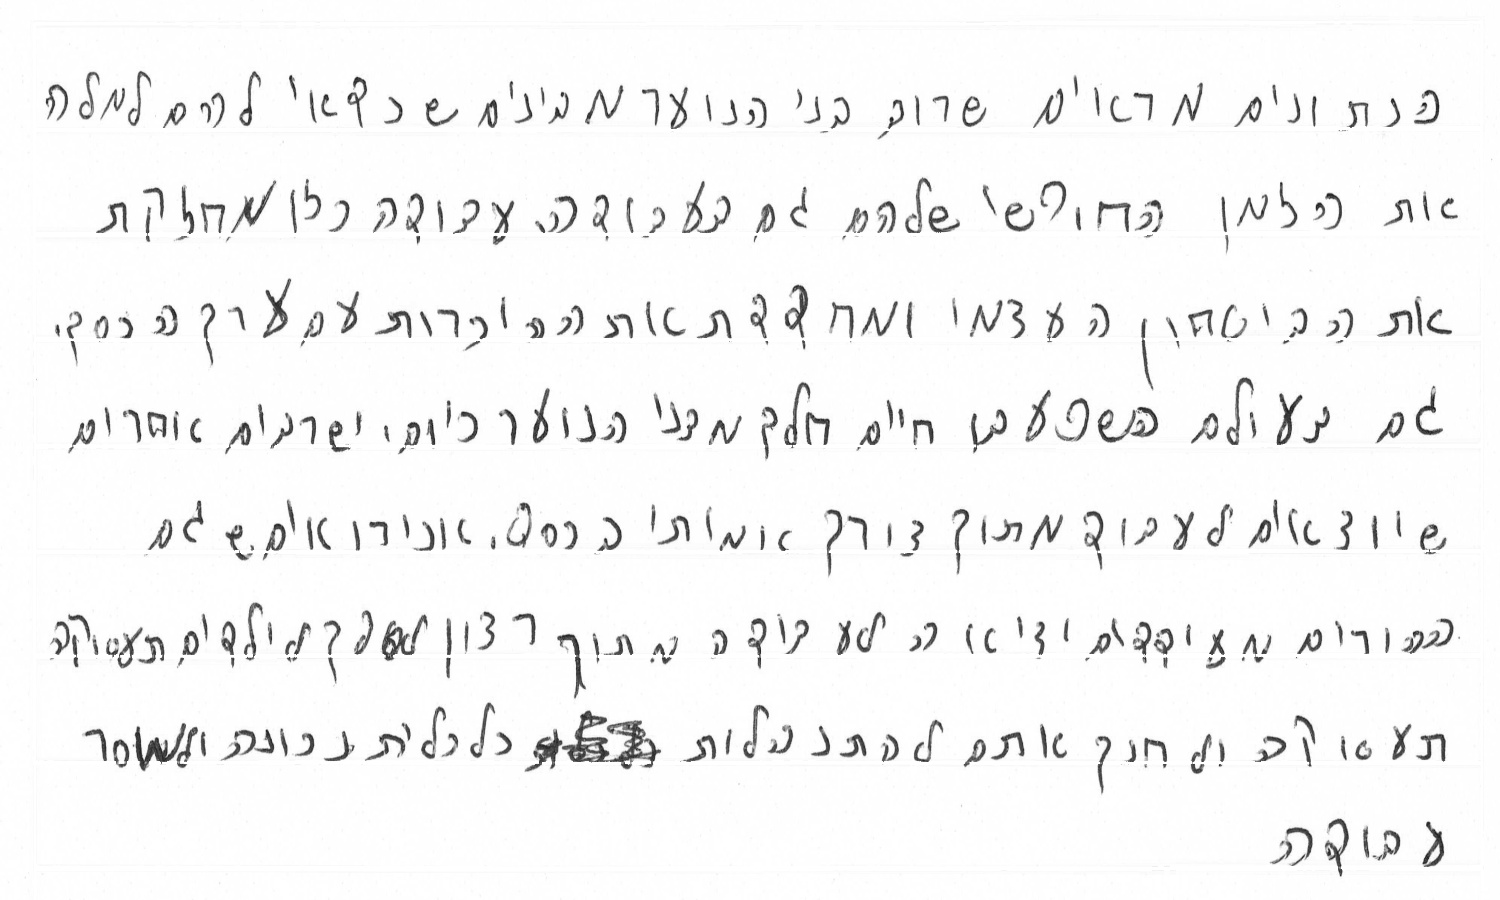 הנתונים מראים שרוב בני הנוער מבינים שכדאי להם למלה
את הזמן החופשי שלהם גם בעבודה. עבודה כזו מחזקת
את הביטחון העצמי ומחדדת את ההיכרות עם ערך הכסף.
גם בעולם השפע בו חיים חלק מבני הנוער כיום, יש רבים אחרים
שיוצאים לעבוד מתוך צורך אמיתי בכסף. אנו רואים שגם
ההורים מעודדים יציאה לעבודה מתוך רצון לספק לילדים תעסוקה
תעסוקה ולחנך אותם להתנהלות כלכלית נכונה ולמוסר
עבודה